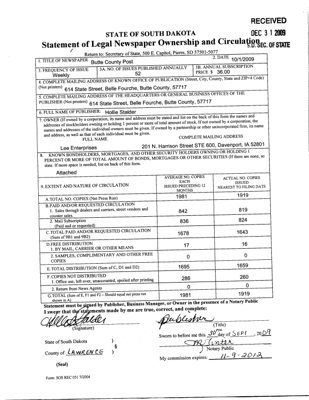 RECEIVED
DEC 31 2009
S.D. SEC. OF STATE
STATE OF SOUTH DAKOTA
Statement of Legal Newspaper Ownership and Circulation
Return to: Secretary of State, 500 E. Capitol, Pierre, SD 57501-5077
1. TITLE OF NEWSPAPER Butte County Post
2. DATE 10/1/2009
3. FREQUENCY OF ISSUE
Weekly
1A. NO. OF ISSUES PUBLISHED ANNUALLY
52
1B. ANNUAL SUBSCRIPTION
PRICE $ 36.00
4. COMPLETE MAILING ADDRESS OF KNOWN OFFICE OF PUBLICATION (Street, City, County, State and ZIP+4 Code)
(Not printers) 614 State Street, Belle Fourche, Butte County, 57717
5. COMPLETE MAILING ADDRESS OF THE HEADQUARTERS OR GENERAL BUSINESS OFFICES OF THE
PUBLISHER (Not printers) 614 State Street, Belle Fourche, Butte County, 57717
6. FULL NAME OF PUBLISHER: Hollie Stalder
7. OWNER (If owned by a corporation, its name and address must be stated and list on the back of this form the names and
addresses of stockholders owning or holding 1 percent or more of total amount of stock. If not owned by a corporation, the
names and addresses of the individual owners must be given. If owned by a partnership or other unincorporated firm, its name
and address, as well as that of each individual must be given.
FULL NAME
COMPLETE MAILING ADDRESS
Lee Enterprises
201 N. Harrison Street STE 600, Davenport, IA 52801
8. KNOWN BONDHOLDERS, MORTGAGEES, AND OTHER SECURITY HOLDERS OWNING OR HOLDING 1
PERCENT OR MORE OF TOTAL AMOUNT OF BONDS, MORTGAGES OR OTHER SECURITIES (If there are none, so
state. If more space is needed, list on back of this form.
Attached
9. EXTENT AND NATURE OF CIRCULATION
AVERAGE NO. COPIES
EACH
ISSUED PRECEDING 12
MONTHS
ACTUAL NO. COPIES
ISSUED
NEAREST TO FILING DATE
A. TOTAL NO. COPIES (Net Press Run) 1981 1919
B. PAID AND/OR REQUESTED CIRCULATION
1. Sales through dealers and carriers, street vendors and
counter sales 842 819
2. Mail Subscription
(Paid and or requested) 836 824
C. TOTAL PAID AND/OR REQUESTED CIRCULATION
(Sum of 9B1 and 9B2) 1678 1643
D. FREE DISTRIBUTION
1. BY MAIL, CARRIER OR OTHER MEANS 17 16
2. SAMPLES, COMPLIMENTARY AND OTHER FREE
COPIES 0 0
E. TOTAL DISTRIBUTION (Sum of C, D1 and D2) 1695 1659
F. COPIES NOT DISTRIBUTED
1. Office use, left over, unaccounted, spoiled after printing 286 260
2. Return from News Agents 0 0
G. TOTAL (Sum of E, F1 and F2 - Should equal net press run
shown in A) 1981 1919
Statement must be signed by Publisher, Business Manager, or Owner in the presence of a Notary Public
I swear that the statements made by me are true, correct, and complete:
Publisher
(Signature)
(Title)
State of South Dakota )
§
County of LAWRENCE )
(Seal)
Sworn to before me this 30 day of SEPT 2009
Notary Public
My commission expires: 11-9-2012
Form: SOS REC 051 7/2004